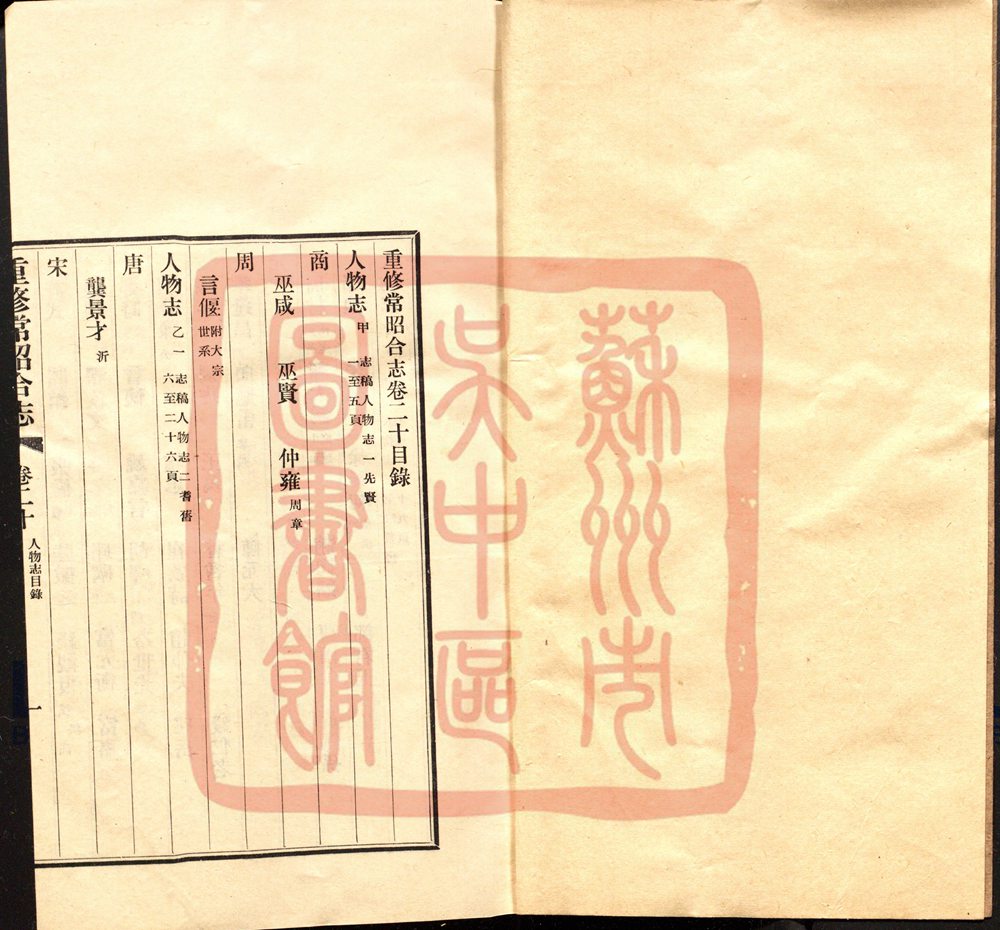 重修常昭合志卷二十目錄
人物志甲 志稿人物志一先賢一至五頁
商
巫咸 巫賢 仲雍周章
周
言偃附大宗世系
人物志乙一 志稿人物志二耆舊六至二十六頁
唐
龔景才沂
宋
重修常昭合志 卷二十 人物志目錄 一
蘇州市
吳中區
圖書館